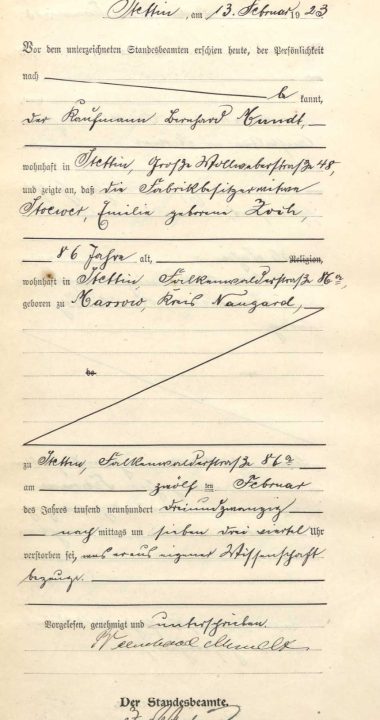 Stettin, am 13. Februar 1923
Vor dem unterzeichneten Standesbeamten erschien heute, der Persönlichkeit
nach be kannt,
der Kaufmann Bernhard Mundt,
wohnhaft in Stettin, Große Wollweberstraße 48,
und zeigte an, daß die Fabrikbesitzerwitwe
Stoewer, Emilie geborene Zoch,
86 Jahre alt, Religion,
wohnhaft in Stettin, Falkenwalderstraße 86a,
geboren zu Massow, Kreis Naugard,
be
zu Stettin, Falkenwalderstraße 86a
am zwölf ten Februar
des Jahres tausend neunhundert dreiundzwanzig
nach mittags um sieben drei viertel Uhr
verstorben sei, was er aus eigener Wissenschaft
bezeuge.
Vorgelesen, genehmigt und unterschrieben.
Bernhard Mundt
Der Standesbeamte.